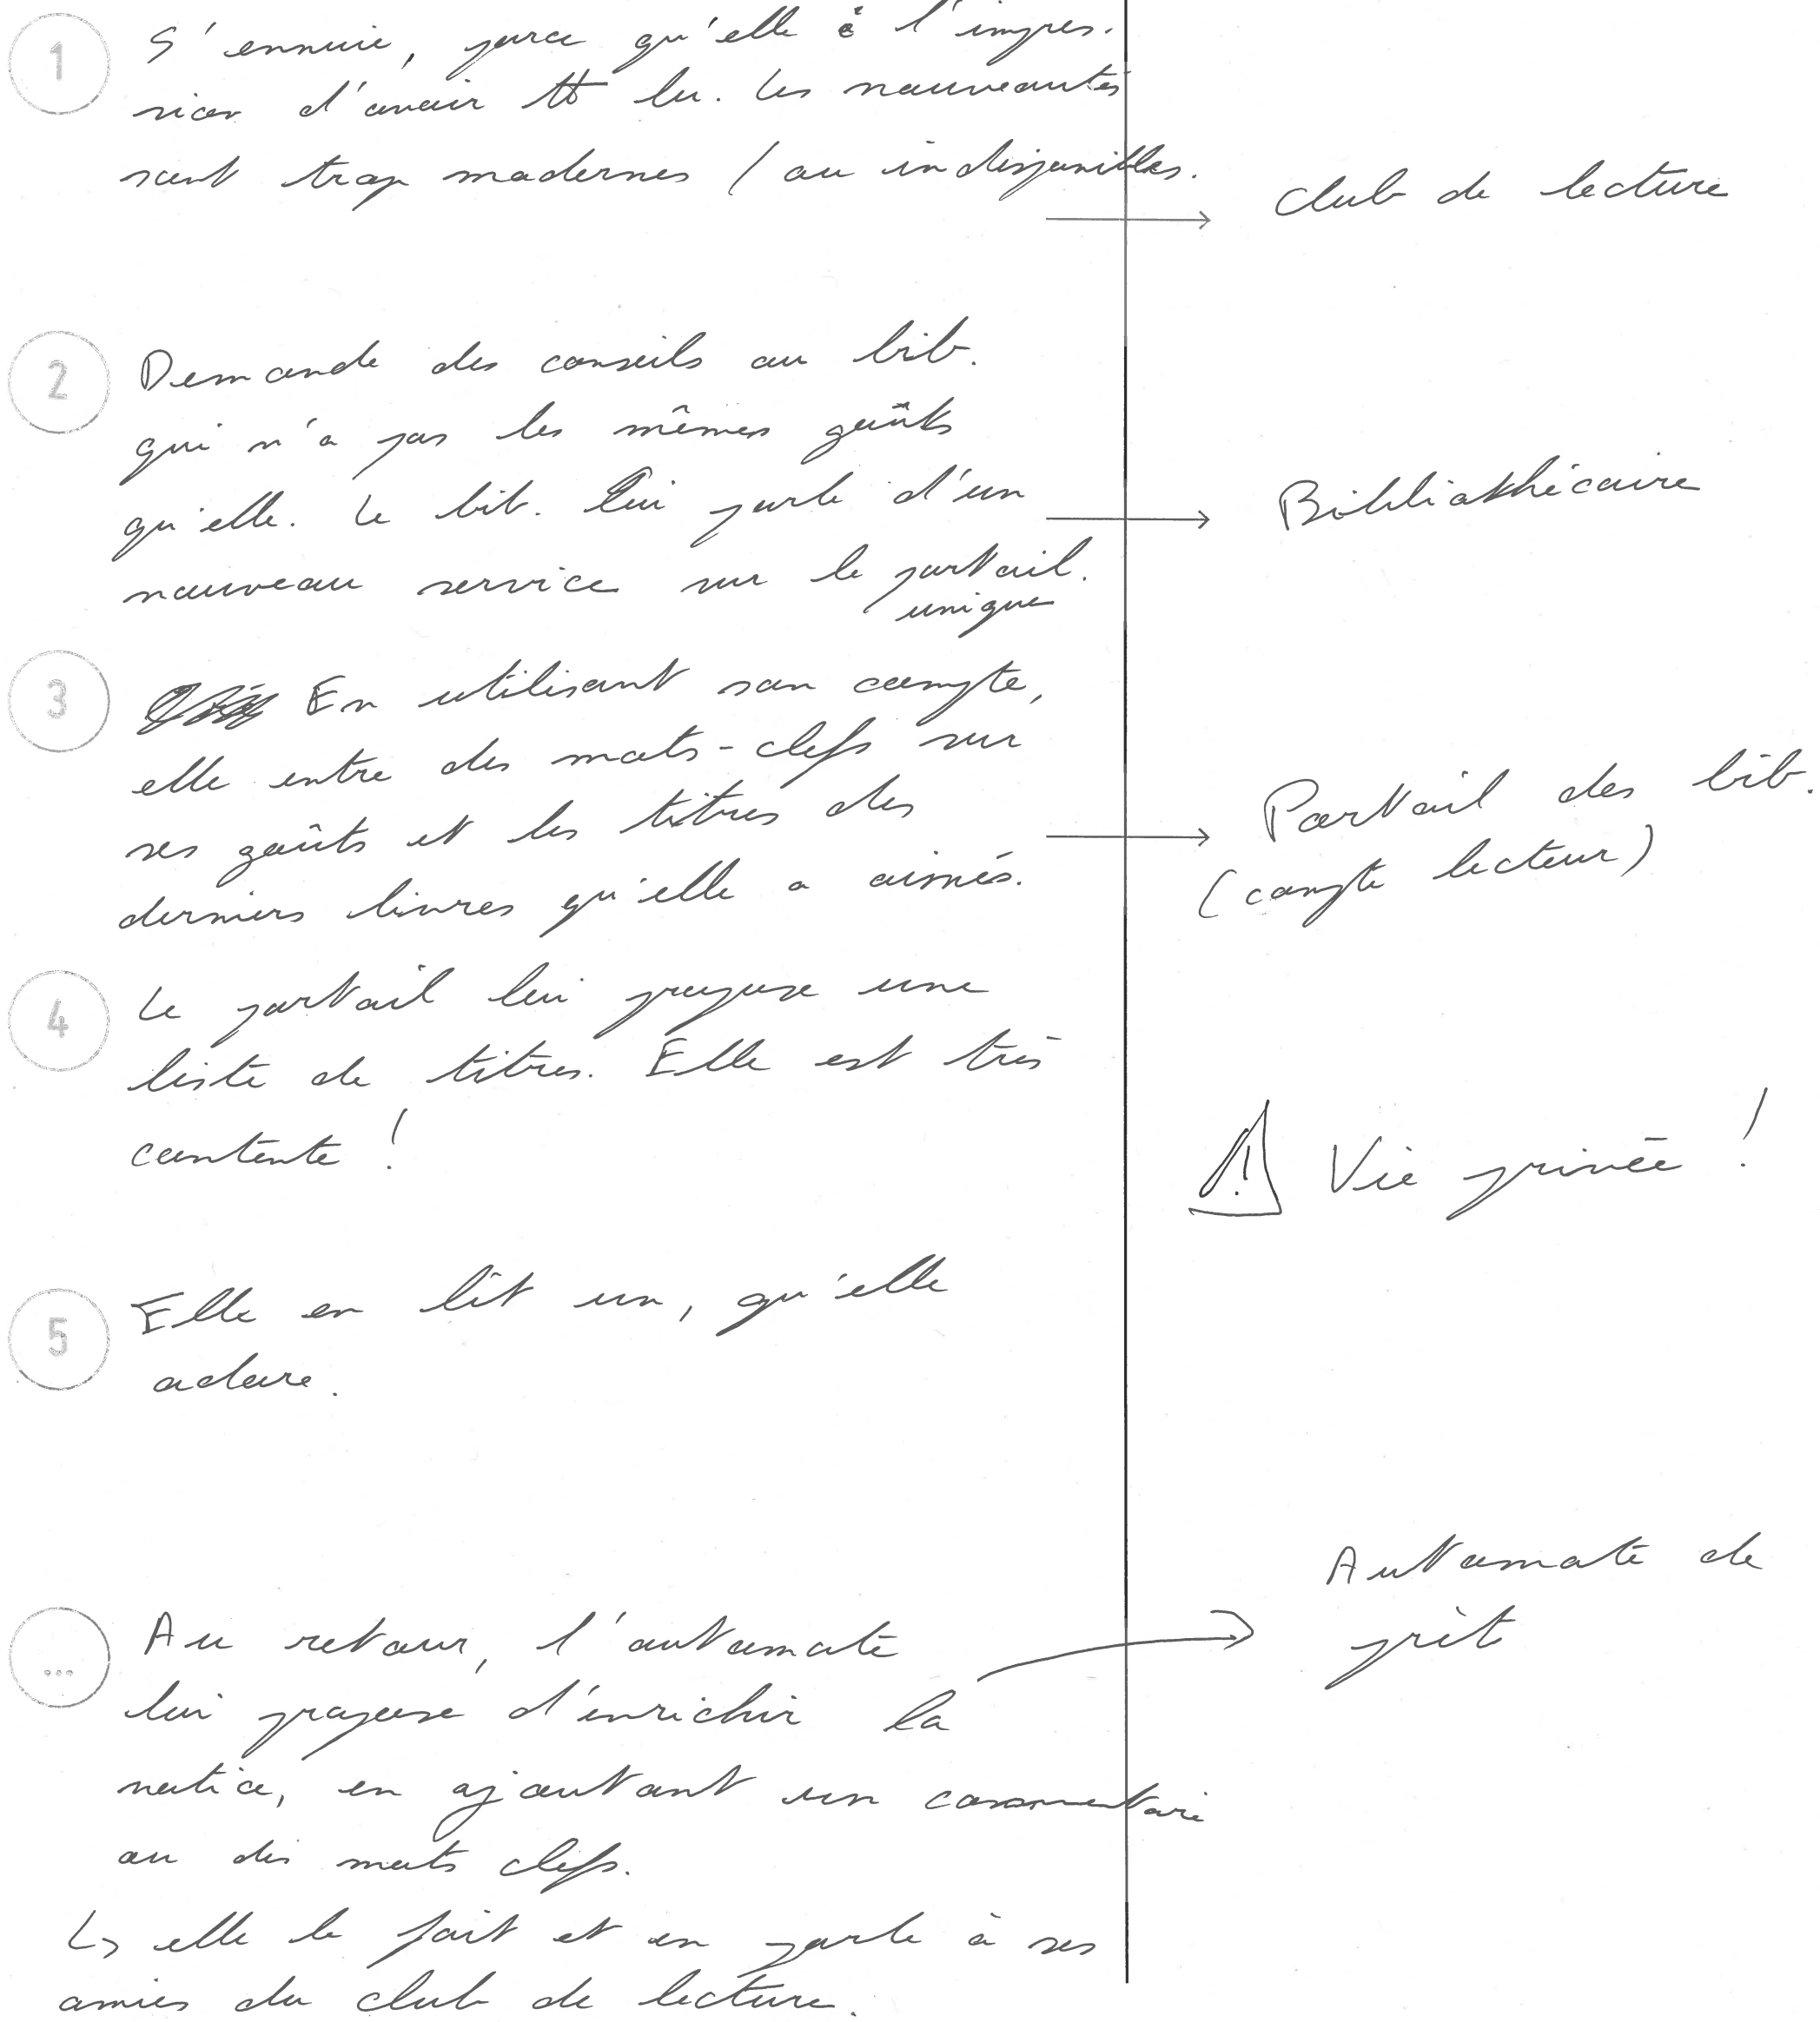 1
S'ennuie, parce qu'elle a l'impres-
sion d'avoir tt lu. Les nouveautés
sont trop modernes / ou indisponibles.
Club de lecture
2
Demande des conseils au bib.
qui n'a pas les mêmes goûts
qu'elle. Le bib. lui parle d'un
nouveau service sur le portail.
unique
Bibliothécaire
3
En utilisant son compte,
elle entre des mots-clefs sur
ses goûts et les titres des
derniers livres qu'elle a aimés.
Portail des bib.
(compte lecteur)
4
Le portail lui propose une
liste de titres. Elle est très
contente !
! Vie privée !
5
Elle en lit un, qu'elle
adore.
...
Au retour, l'automate
lui propose d'enrichir la
notice, en ajoutant un commentaire
ou des mots clefs.
↳ elle le fait et en parle à ses
amies du club de lecture.
Automate de
prêt